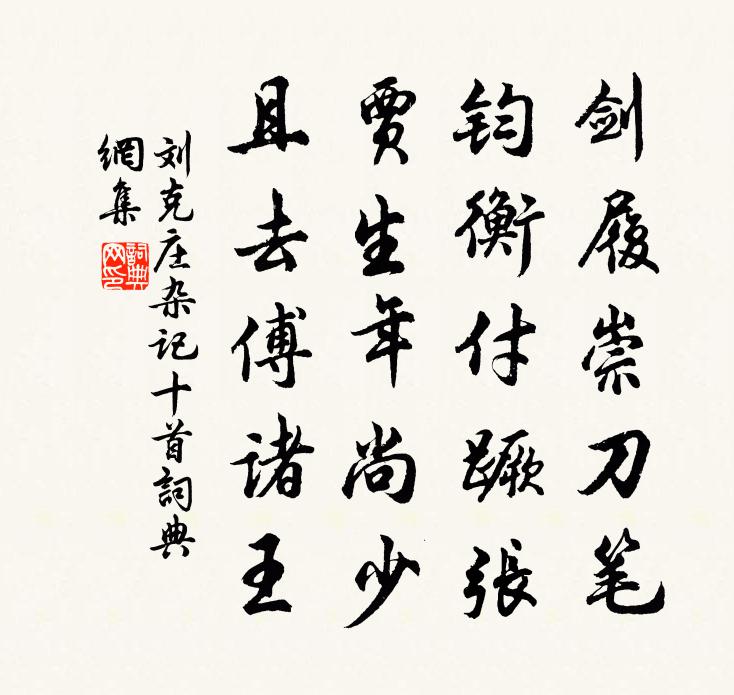 剑履崇刀笔
钧衡付蹶張
贾生年尚少
且去傅诸王
刘克庄杂记十首詞典
網集
詞典
网印